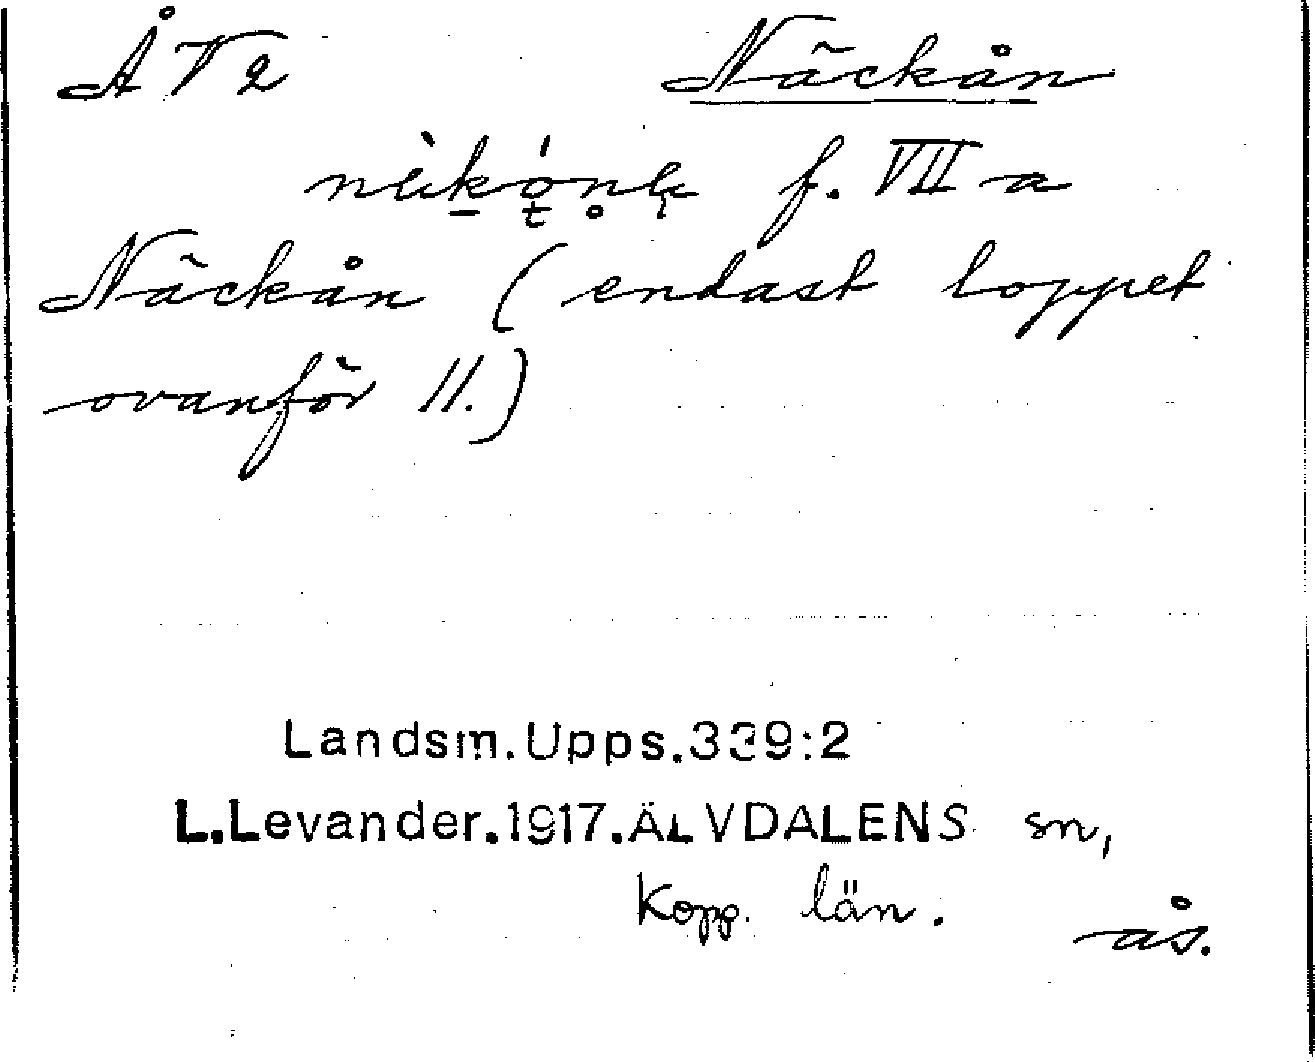 ÅT2 Näckån
f. VII a
Näckån (endast loppet
ovanför 11.)
Landsm.Upps.339:2
L.Levander.1917.ÄLVDALENS sn,
Kopp. län.
ås.